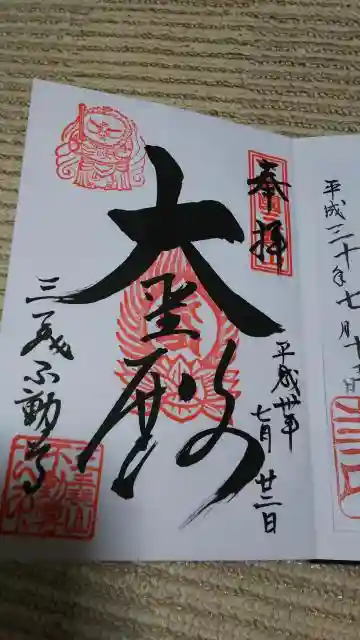 平成三十年七月十二日
奉拝
平成卅年
七月廿二日
大聖殿
三義不動尊